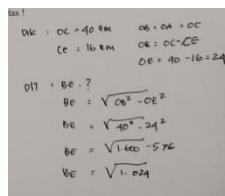 tas !
Dik : OC = 40 cm   OB = OA = OC
CE = 16 cm   OE = OC - CE
OE = 40 - 16 = 24
Dit : BE . ?
BE = √OB² - OE²
BE = √40² - 24²
BE = √1.600 - 576
BE = √1.024